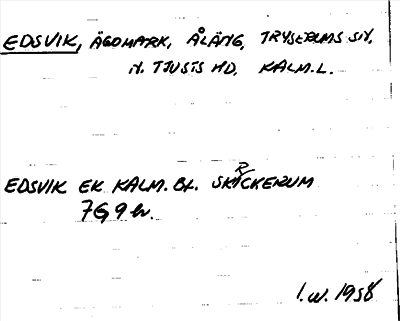 EDSVIK, ÄGOMARK, ÅLÄNG, TRYSERUMS SN,
N. TJUSTS HD, KALM.L.
EDSVIK EK KALM. BL. SKRICKERUM
7G 9h.
I.W. 1958